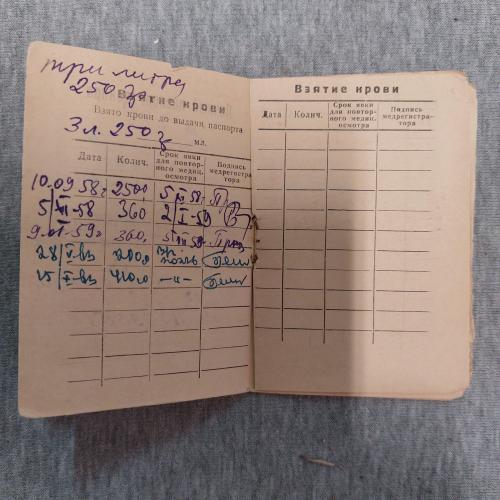 три литра
250 г
Взятие крови
Взято крови до выдачи паспорта
3 л. 250 г мл.
Дата Колич. Срок явки для повторного медиц. осмотра Подпись медрегистратора
10.09 58 г 250,0 5 58 г.
5 XII-58 360 2 I-59
9.01-59 г 360, 59
28 200,0
15 410,0 -"-
Взятие крови
Дата Колич. Срок явки для повторного медиц. осмотра Подпись медрегистратора